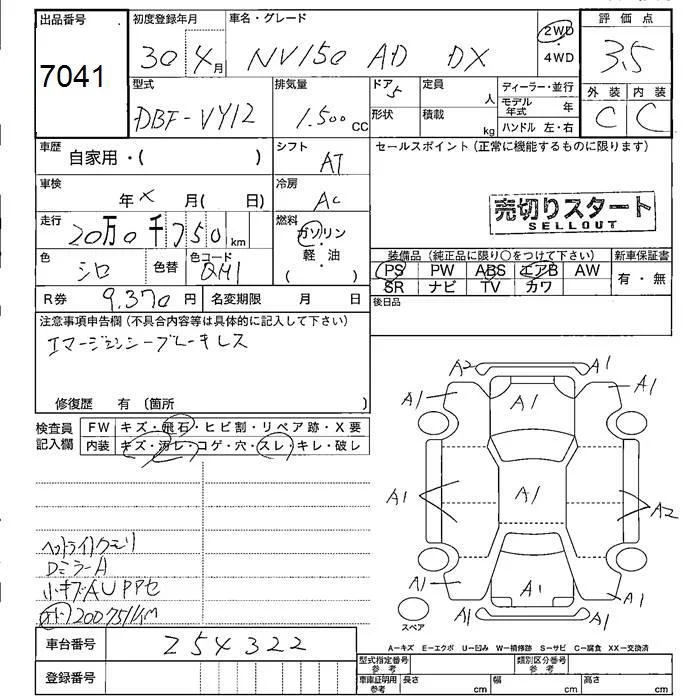 出品番号
7041
初度登録年月
30 4月
車名・グレード
NV150 AD DX
2WD
・
4WD
評価点
3.5
型式
DBF-VY12
排気量
1.500cc
ドア
5
形状
定員
人
積載
kg
ディーラー・並行
モデル年式 年
ハンドル 左・右
外装 内装
C C
車歴
自家用・( )
シフト
AT
セールスポイント(正常に機能するものに限ります)
車検
年 × 月( 日)
冷房
AC
売切りスタート
SELLOUT
走行
20万0千750km
燃料
ガソリン
・
軽油
( )
色
シロ
色替
色コード
QM1
装備品(純正品に限り○をつけて下さい)
新車保証書
PS PW ABS エアB AW
有・無
SR ナビ TV カワ
R券 9.370円
名変期限 月 日
後日品
注意事項申告欄(不具合内容等は具体的に記入して下さい)
エマージェンシーブレーキレス
修復歴 有 〔箇所
検査員
記入欄
FW キズ・飛石・ヒビ割・リペア跡・X要
内装 キズ・汚レ・コゲ・穴・スレ・キレ・破レ
ヘッドライトクモリ
DミラーA
小キズAUPPセ
200751KM
A2 A1
A1 A1 A1
A1 A1 A2
A1 A1 A1
A1 A1
スペア
A-キズ E-エクボ U-凹み W-補修跡 S-サビ C-腐食 XX-交換済
車台番号
254322
登録番号
型式指定番号
参考
類別区分番号
参考
車庫証明用
参考
長さ cm
幅 cm
高さ cm